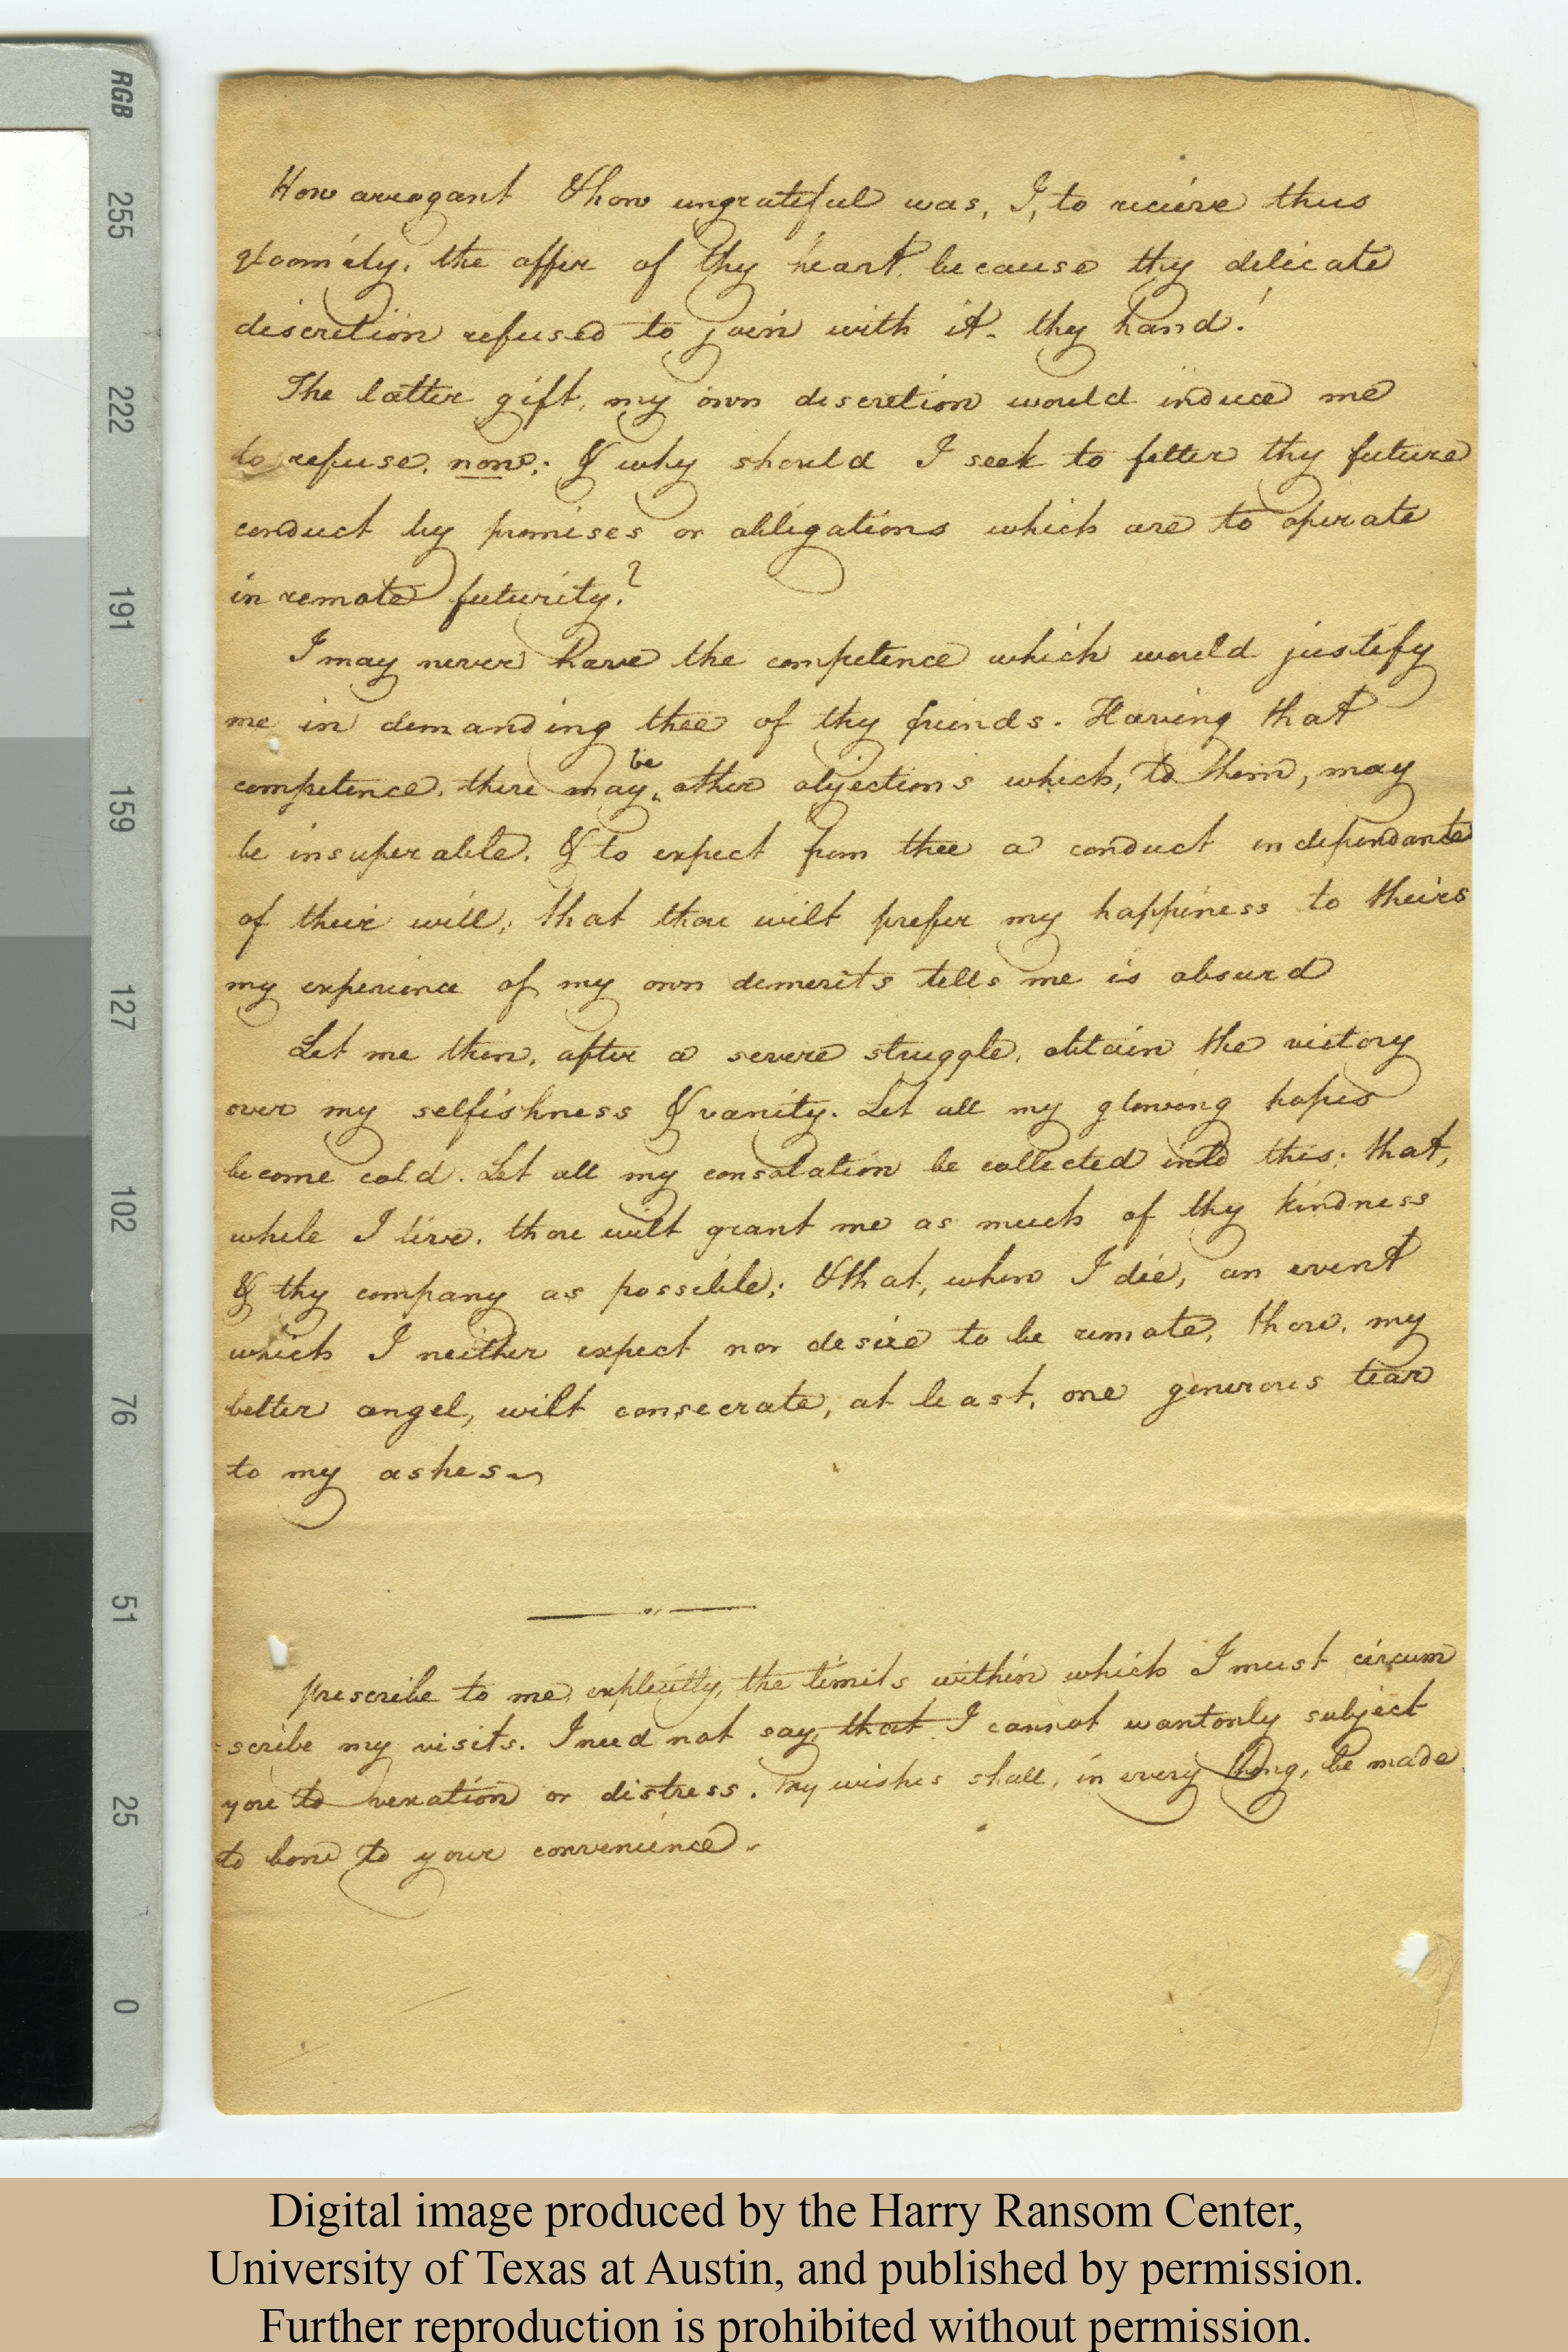 RGB
255
222
191
159
127
102
76
51
25
0
How arrogant & how ungrateful was, I, to recieve thus
gloomily, the offer of thy heart, because thy delicate
discretion refused to join with it, thy hand!
The latter gift, my own discretion would induce me
to refuse, now; & why should I seek to fetter thy future
conduct by promises or obligations which are to operate
in remote futurity?
I may never have the competence which would justify
me in demanding thee of thy friends. Having that
competence, there may be other objections which, to them, may
be insuperable. & to expect from thee a conduct independante
of their will; that thou wilt prefer my happiness to theirs
my experience of my own demerits tells me is absurd
Let me then, after a severe struggle, obtain the victory
over my selfishness & vanity. Let all my glowing hopes
become cold. Let all my consolation be collected into this; that,
while I live, thou wilt grant me as much of thy kindness
& thy company as possible; & that, when I die, an event
which I neither expect nor desire to be remote, thou, my
better angel, wilt consecrate, at least, one generous tear
to my ashes
prescribe to me, explicitly, the limits within which I must circum
=scribe my visits. I need not say, that I cannot wantonly subject
you to vexation or distress. my wishes shall, in every thing, be made
to bow to your convenience.
Digital image produced by the Harry Ransom Center,
University of Texas at Austin, and published by permission.
Further reproduction is prohibited without permission.